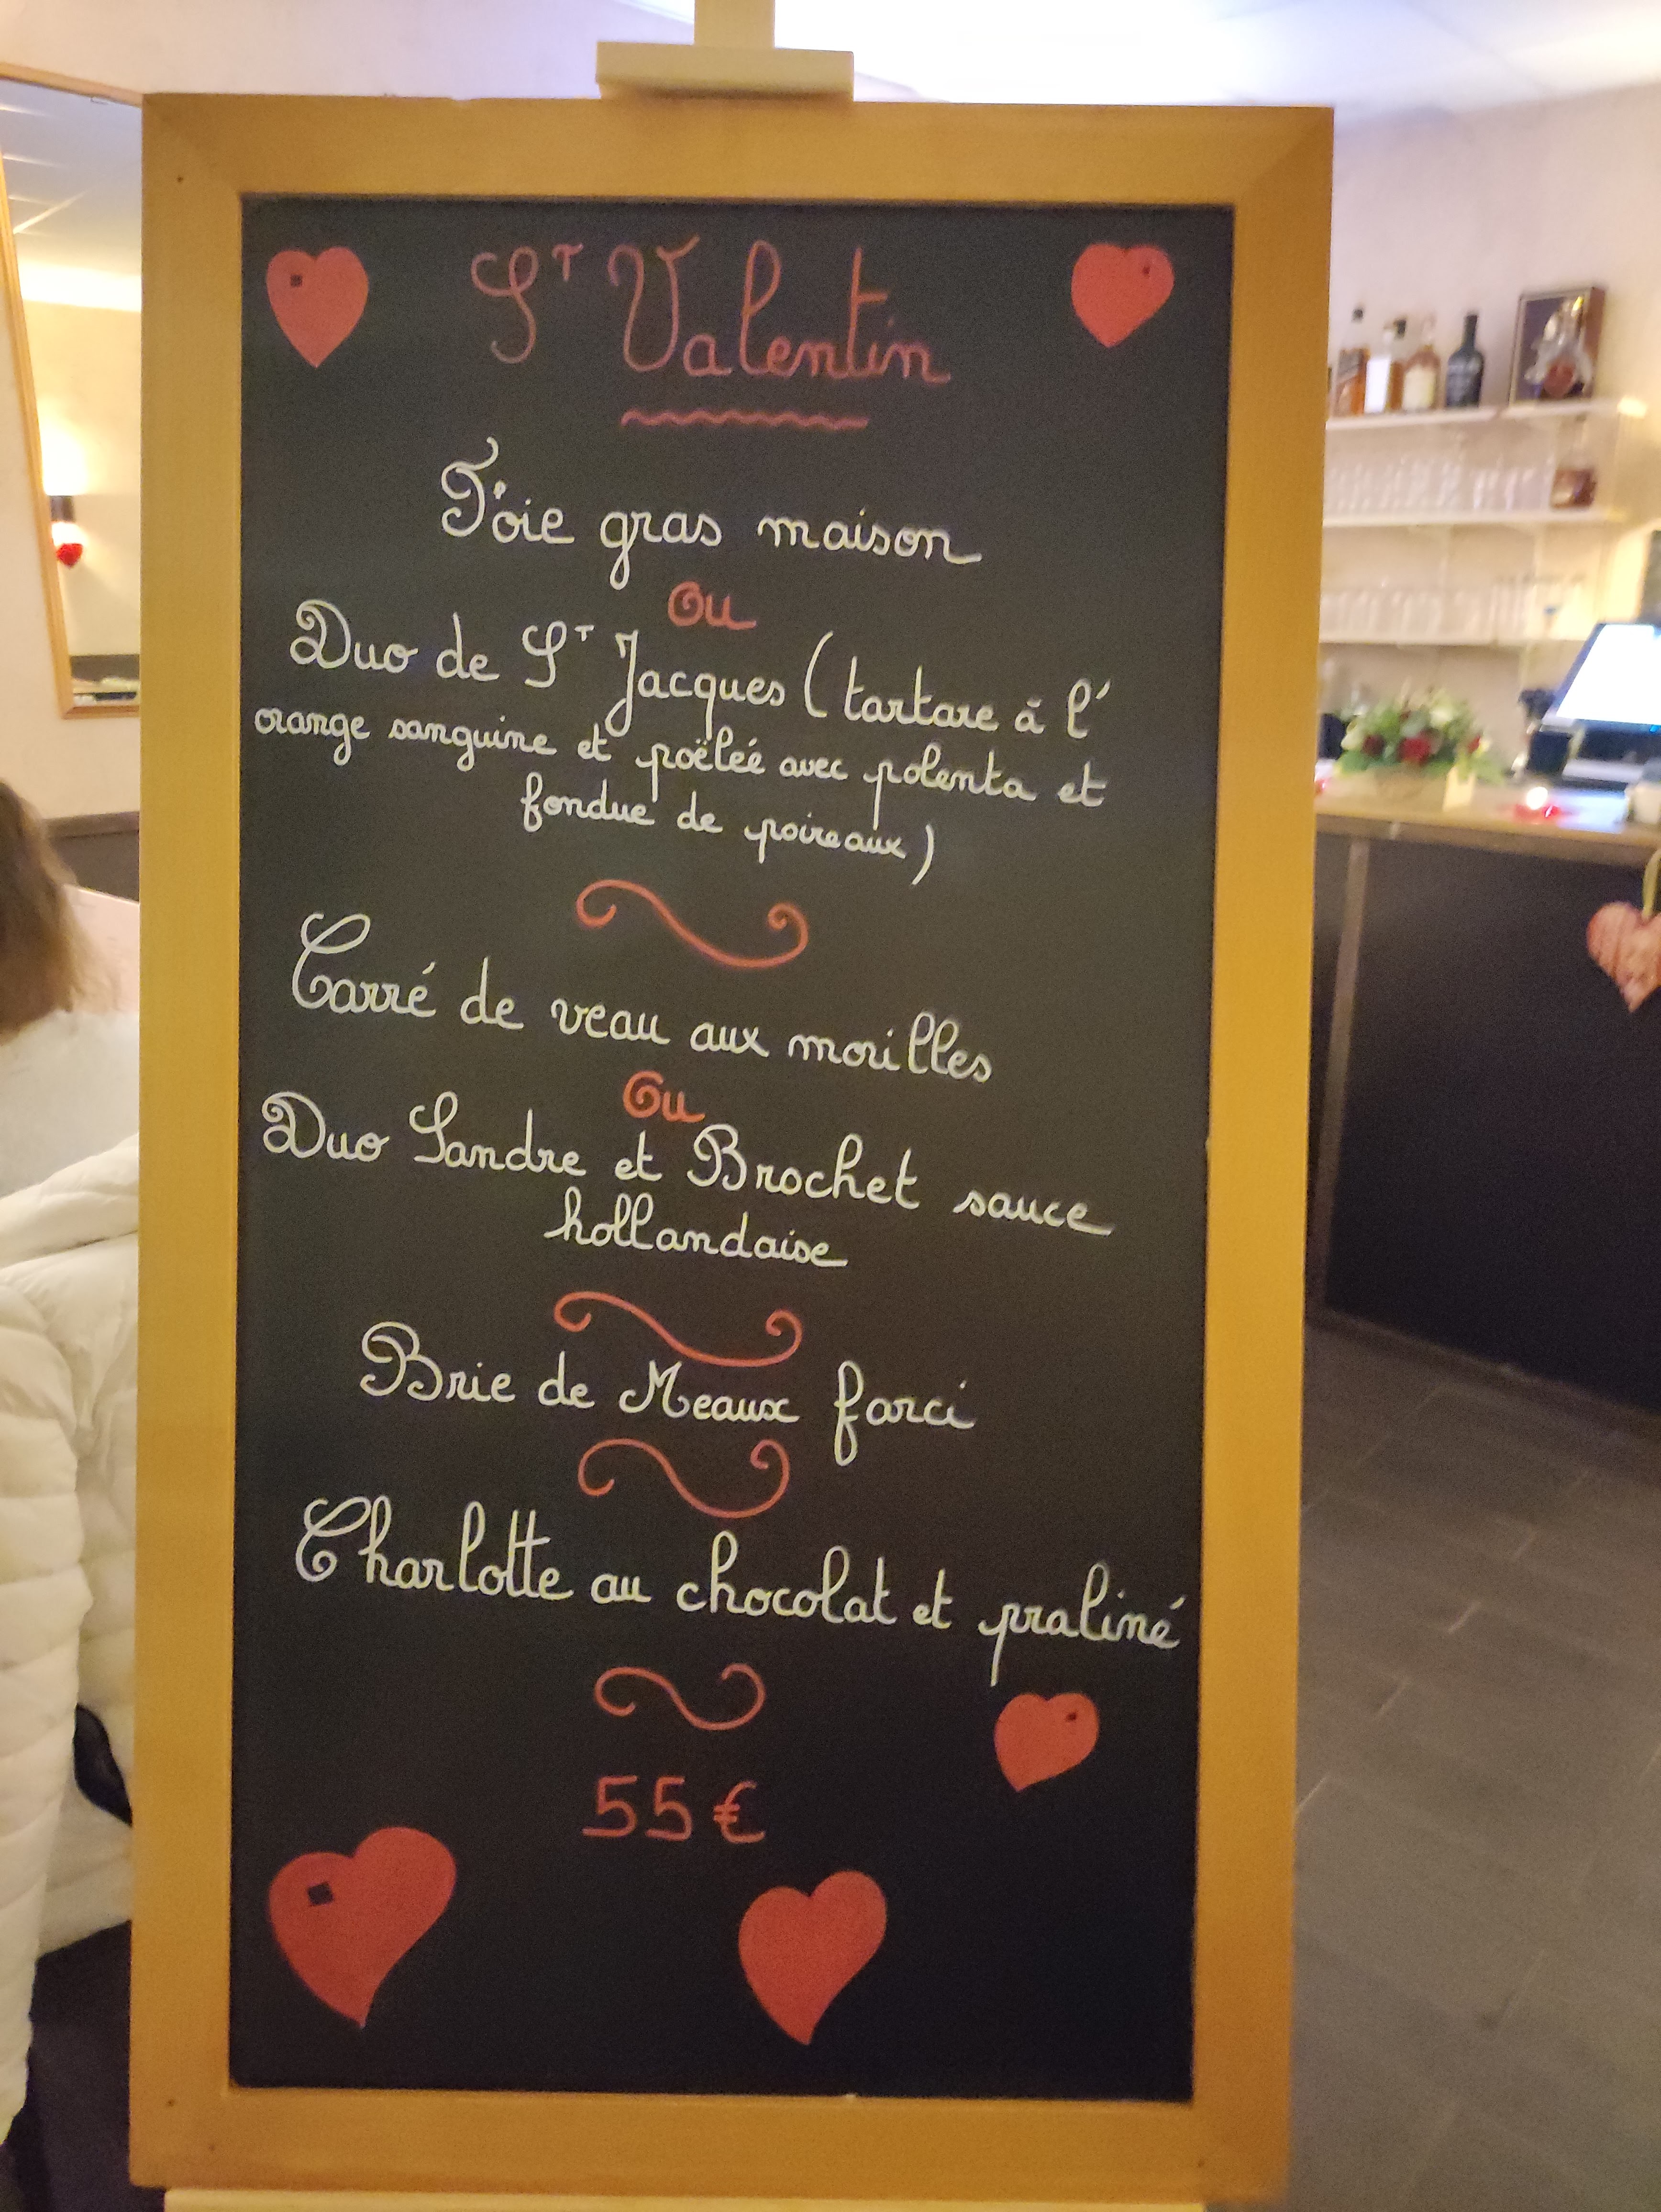 St Valentin
Foie gras maison
ou
Duo de St Jacques (tartare à l'
orange sanguine et poëlée avec polenta et
fondue de poireaux)
Carré de veau aux morilles
Ou
Duo Sandre et Brochet sauce
hollandaise
Brie de Meaux farci
Charlotte au chocolat et praliné
55€